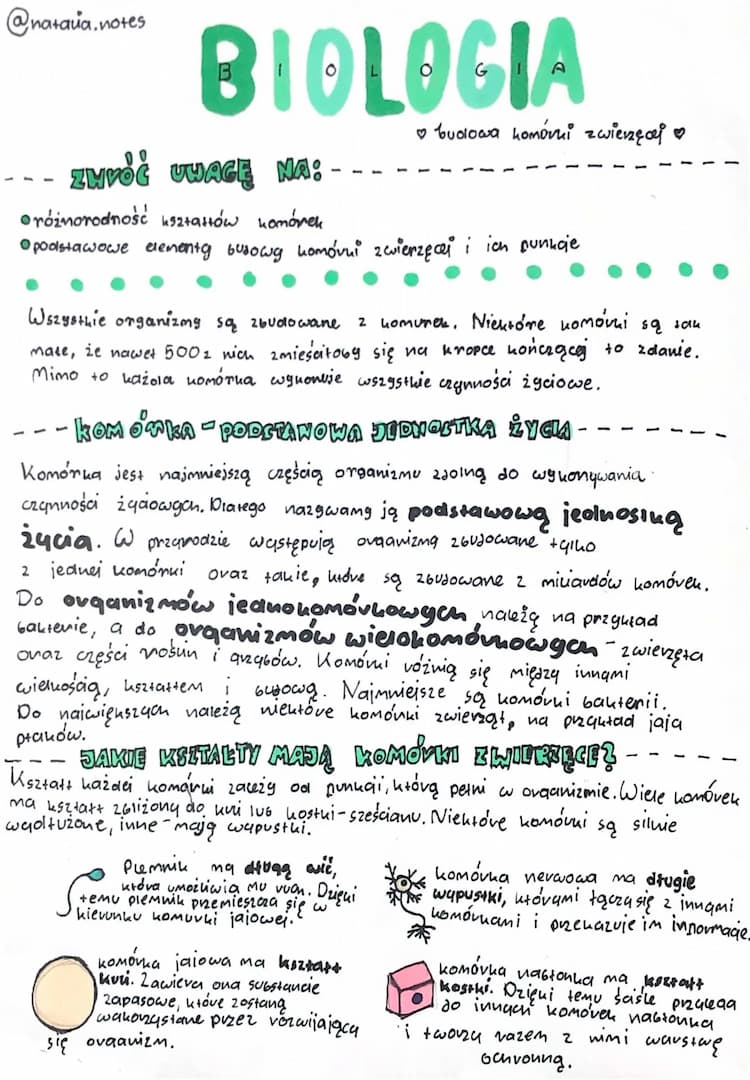 @natalia.notes
BIOLOGIA
B I O L O G I A
♡ budowa komórki zwierzęcej ♡
ZWRÓĆ UWAGĘ NA:
różnorodność kształtów komórek
podstawowe elementy budowy komórki zwierzęcej i ich funkcje
Wszystkie organizmy są zbudowane z komurek. Niektóre komórki są tak
małe, że nawet 500 z nich zmieściłoby się na kropce kończącej to zdanie.
Mimo to każda komórka wykonuje wszystkie czynności życiowe.
KOMÓRKA - PODSTAWOWA JEDNOSTKA ŻYCIA
Komórka jest najmniejszą częścią organizmu zdolną do wykonywania
czynności życiowych. Dlatego nazywamy ją podstawową jednostką
życia. W przyrodzie występują organizmy zbudowane tylko
z jednej komórki oraz takie, które są zbudowane z miliardów komórek.
Do organizmów jednokomórkowych należą na przykład
bakterie, a do organizmów wielokomórkowych - zwierzęta
oraz części roślin i grzybów. Komórki różnią się między innymi
wielkością, kształtem i budową. Najmniejsze są komórki bakterii.
Do największych należą niektóre komórki zwierząt, na przykład jaja
ptaków.
JAKIE KSZTAŁTY MAJĄ KOMÓRKI ZWIERZĘCE?
Kształt każdej komórki zależy od funkcji, którą pełni w organizmie. Wiele komórek
ma kształt zbliżony do kuli lub kostki - sześcianu. Niektóre komórki są silnie
wydłużone, inne - mają wypustki.
Plemnik ma długą wić,
która umożliwia mu ruch. Dzięki
temu plemnik przemieszcza się w
kierunku komurki jajowej.
komórka nerwowa ma długie
wypustki, którymi łączą się z innymi
komórkami i przekazuje im informacje.
komórka jajowa ma kształt
kuli. Zawiera ona substancje
zapasowe, które zostaną
wykorzystane przez rozwijający
się organizm.
komórka nabłonka ma kształt
kostki. Dzięki temu ściśle przylega
do innych komórek nabłonka
i tworzy razem z nimi warstwę
ochronną.